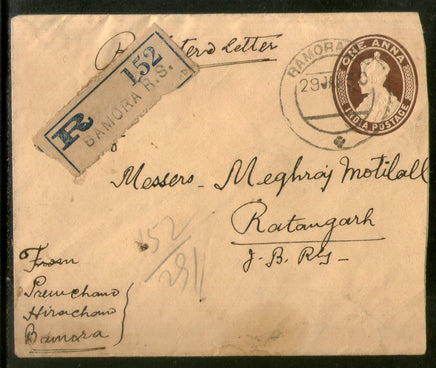 Registered Letter
R 152
BAMORA R.S.
BAMORA
29 J
ONE ANNA
INDIA POSTAGE
Messers - Meghraj Motilall
Ratangarh
J. B. Rly -
152
29/1
From
Premchand
Hirachand
Bamora